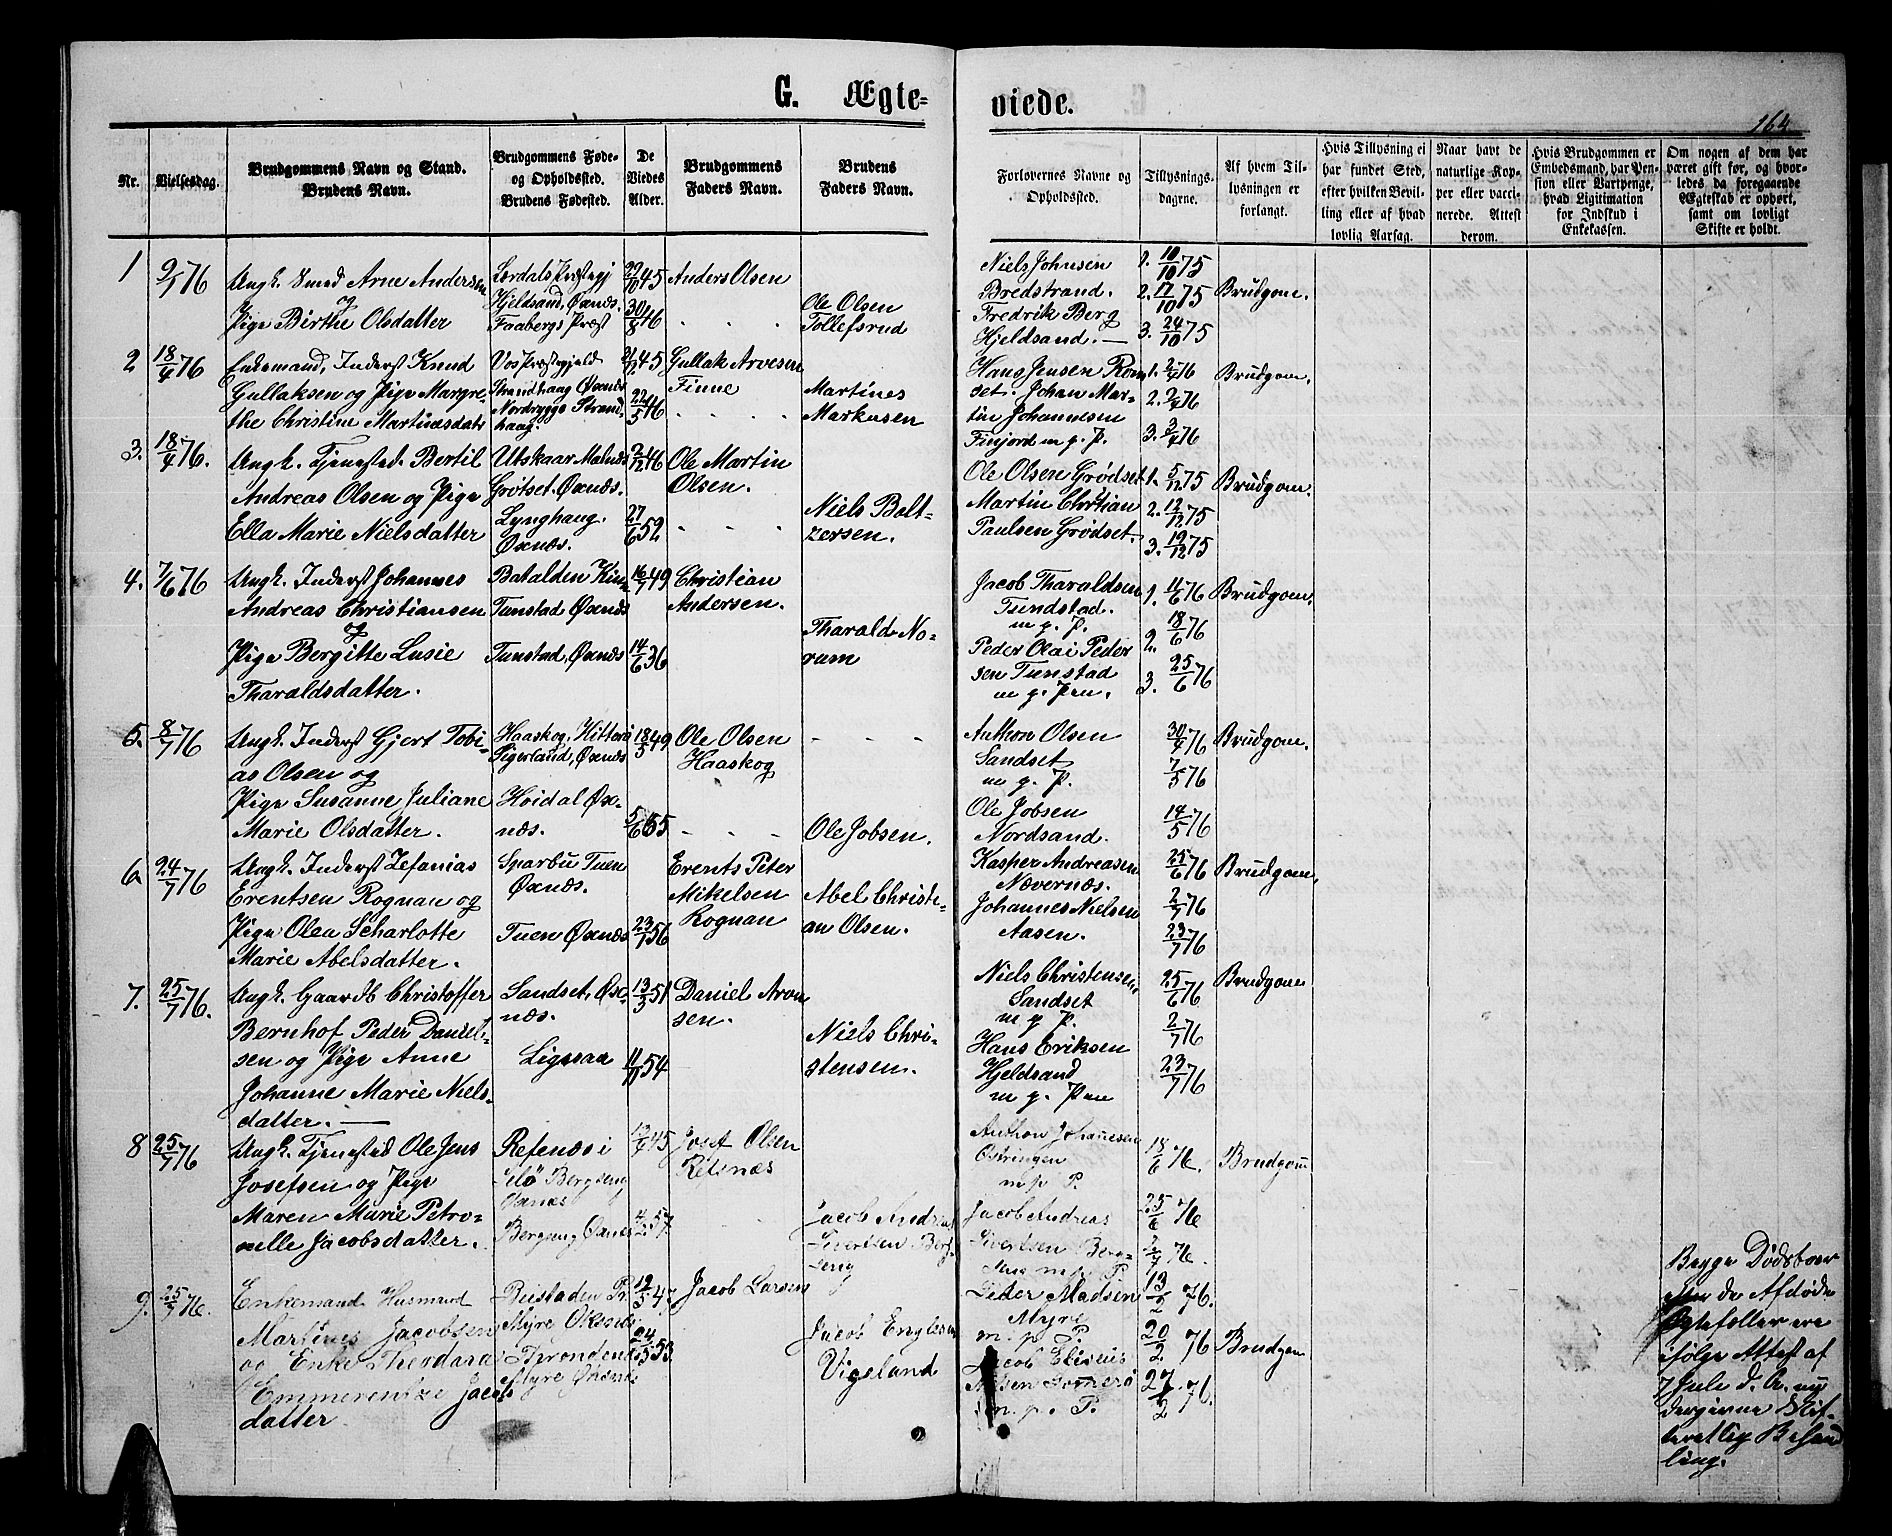 G. Ægte=
viede.
164
Nr.
Vielsesdag.
Brudgommens Navn og Stand.
Brudens Navn.
Brudgommens Føde-
og Opholdssted.
Brudens Fødested.
De
Viedes
Alder.
Brudgommens
Faders Navn.
Brudens
Faders Navn.
Forlovernes Navne og
Opholdssted.
Tillysnings-
dagene.
Af hvem Til-
lysningen er
forlangt.
Hvis Tillysning ei
har fundet Sted,
efter hvilken Bevil-
ling eller af hvad
lovlig Aarsag.
Naar havt de
naturlige Kop-
per eller vacci-
nerede. Attest
derom.
Hvis Brudgommen er
Embedsmand, har Pen-
sion eller Vartpenge,
hvad Ligitimation
for Indskud i
Enkekassen.
Om nogen af dem har
været gift før, og hvor-
ledes da foregaaende
Ægteskab er ophørt,
samt om lovligt
Skifte er holdt.
1
9/1 76
Ungk. Smed Arne Andersen
og
Pige Birthe Olsdatter
Lerdals Præstegj
Hjeldsand, Øxnæs.
Faabergs Præst
22/10 45
30/8 46
Anders Olsen
Ole Olsen
Tollefsrud
Niels Johnsen
Bredstrand.
Fredrik Berg
Hjeldsand. —
1. 10/10 75
2. 17/10 75
3. 24/10 75
Brudgom.
2
18/4 76
Enkemand, Inderst Knud
Gullaksen og Pige Margre-
the Christine Martinusdatr
Vos Præstegjeld
Strandhaug Øxnæs
Nordrygge Strand-
haag.
45
22/5 46
Gullak Arvesen
Finne
Martines
Markusen
Hans Jensen Rom-
set. Johan Mar-
tin Johannesen
Finjord m. p. P.
1. 2/4 76
2. 2/4 76
3. 3/4 76
Brudgom.
3.
18/4 76.
Ungk. Tjenested. Bertil
Andreas Olsen og Pige
Ella Marie Nielsdatter
Utskaar Malnæs
Grøtset. Øxnæs.
Lynghaug.
Øxnæs.
2/12 46
27/6 52
Ole Martin
Olsen.
Niels Balt-
zersen.
Ole Olsen Grødset
Martin Christian
Paulsen Grødset.
1. 5/12 75
2. 12/12 75
3. 19/12 75
Brudgom.
4.
7/6 76
Ungk. Inderst Johannes
Andreas Christiansen
og
Pige Bergitte Lusie
Tharaldsdatter.
Batalden Kin-
Tunstad Øxnæs
Tunstad, Øxnæs
16/7 49
14/6 36
Christian
Andersen.
Tharald No-
rum
Jacob Tharaldsen
Tundstad.
m. p. P.
Peder Olai Peder
sen Tunstad
m. p. Pen.
1. 11/6 76
2. 18/6 76
3. 25/6 76
Brudgom.
5.
8/7 76
Ungk. Inderst Gjert Tobi-
as Olsen og
Pige Susanne Juliane
Marie Olsdatter.
Haaskog. Hitterø
Tigerland, Øxnæs
Høidal Øx-
næs.
18/3 49
5/6 55
Ole Olsen
Haaskog
Ole Jobsen.
Anthon Olsen
Sandset
m. p. P.
Ole Jobsen
Nordsand.
30/4 76
7/5 76
14/5 76
Brudgom.
6
24/7 76
Ungk. Inderst Zefanias
Erentsen Rognan og
Pige Olea Scharlotte
Marie Abelsdatter.
Sparbu Tuen
Øxnæs.
Tuen Øxnæs
23/7 56
Erents Peter
Mikelsen
Rognan
Abel Christi-
an Olsen.
Kasper Andreasen
Nævernæs.
Johannes Nielsen
Aasen.
25/6 76
2/7 76
23/7 76
Brudgom.
7.
25/7 76.
Ungk. Gaardb Christoffer
Bernhof Peder Daniel-
sen og Pige Anne
Johanne Marie Niels-
datter. —
Sandset, Øx-
næs.
Ligesaa
13/3 51
11/11 54
Daniel Aron
sen.
Niels Chri-
stensen.
Niels Christensen,
Sandset
m p P.
Hans Eriksen
Hjeldsand
m p. Pen
25/6 76
2/7 76
23/7 76
Brudgom
8
25/7 76
Ungk. Tjenested Ole Jens
Josefsen og Pige
Maren Marie Petro-
nelle Jacobsdatter.
Refsnæs i
Øxnæs
Bergeng Øxnæs
45
57.
Josef Olsen
Refsnæs
Jacob Andreas
Sivertsen Berg-
eng
Anthon Johannesen
Østringen
m. p. P.
Jacob Andreas
Sivertsen Berg-
eng m. p. P.
18/6 76.
25/6 76
2/7 76.
Brudgom
9.
25/7 76.
Enkemand Husmand
Martines Jacobsen
og Enke Theodara
Emmerentze Jacobs
datter
Beistaden Pr.
Myre Øksnæs
Trondenæs
Myre Øksnæs
12/5 47.
24/5 53.
Jacob Larsen
Jacob Englesen
Vigeland
Peder Madsen
Myre
m. p. P.
Jacob Elisius
m. p. P.
13/2 76.
20/2 76
27/2 76.
Brudgom
Begge Dødsboer
efter de Afdøde
Egtefæller ere
ifølge Attest af
7 Jule d. A. un
dergivne Skif-
teretlig Behand
ling.